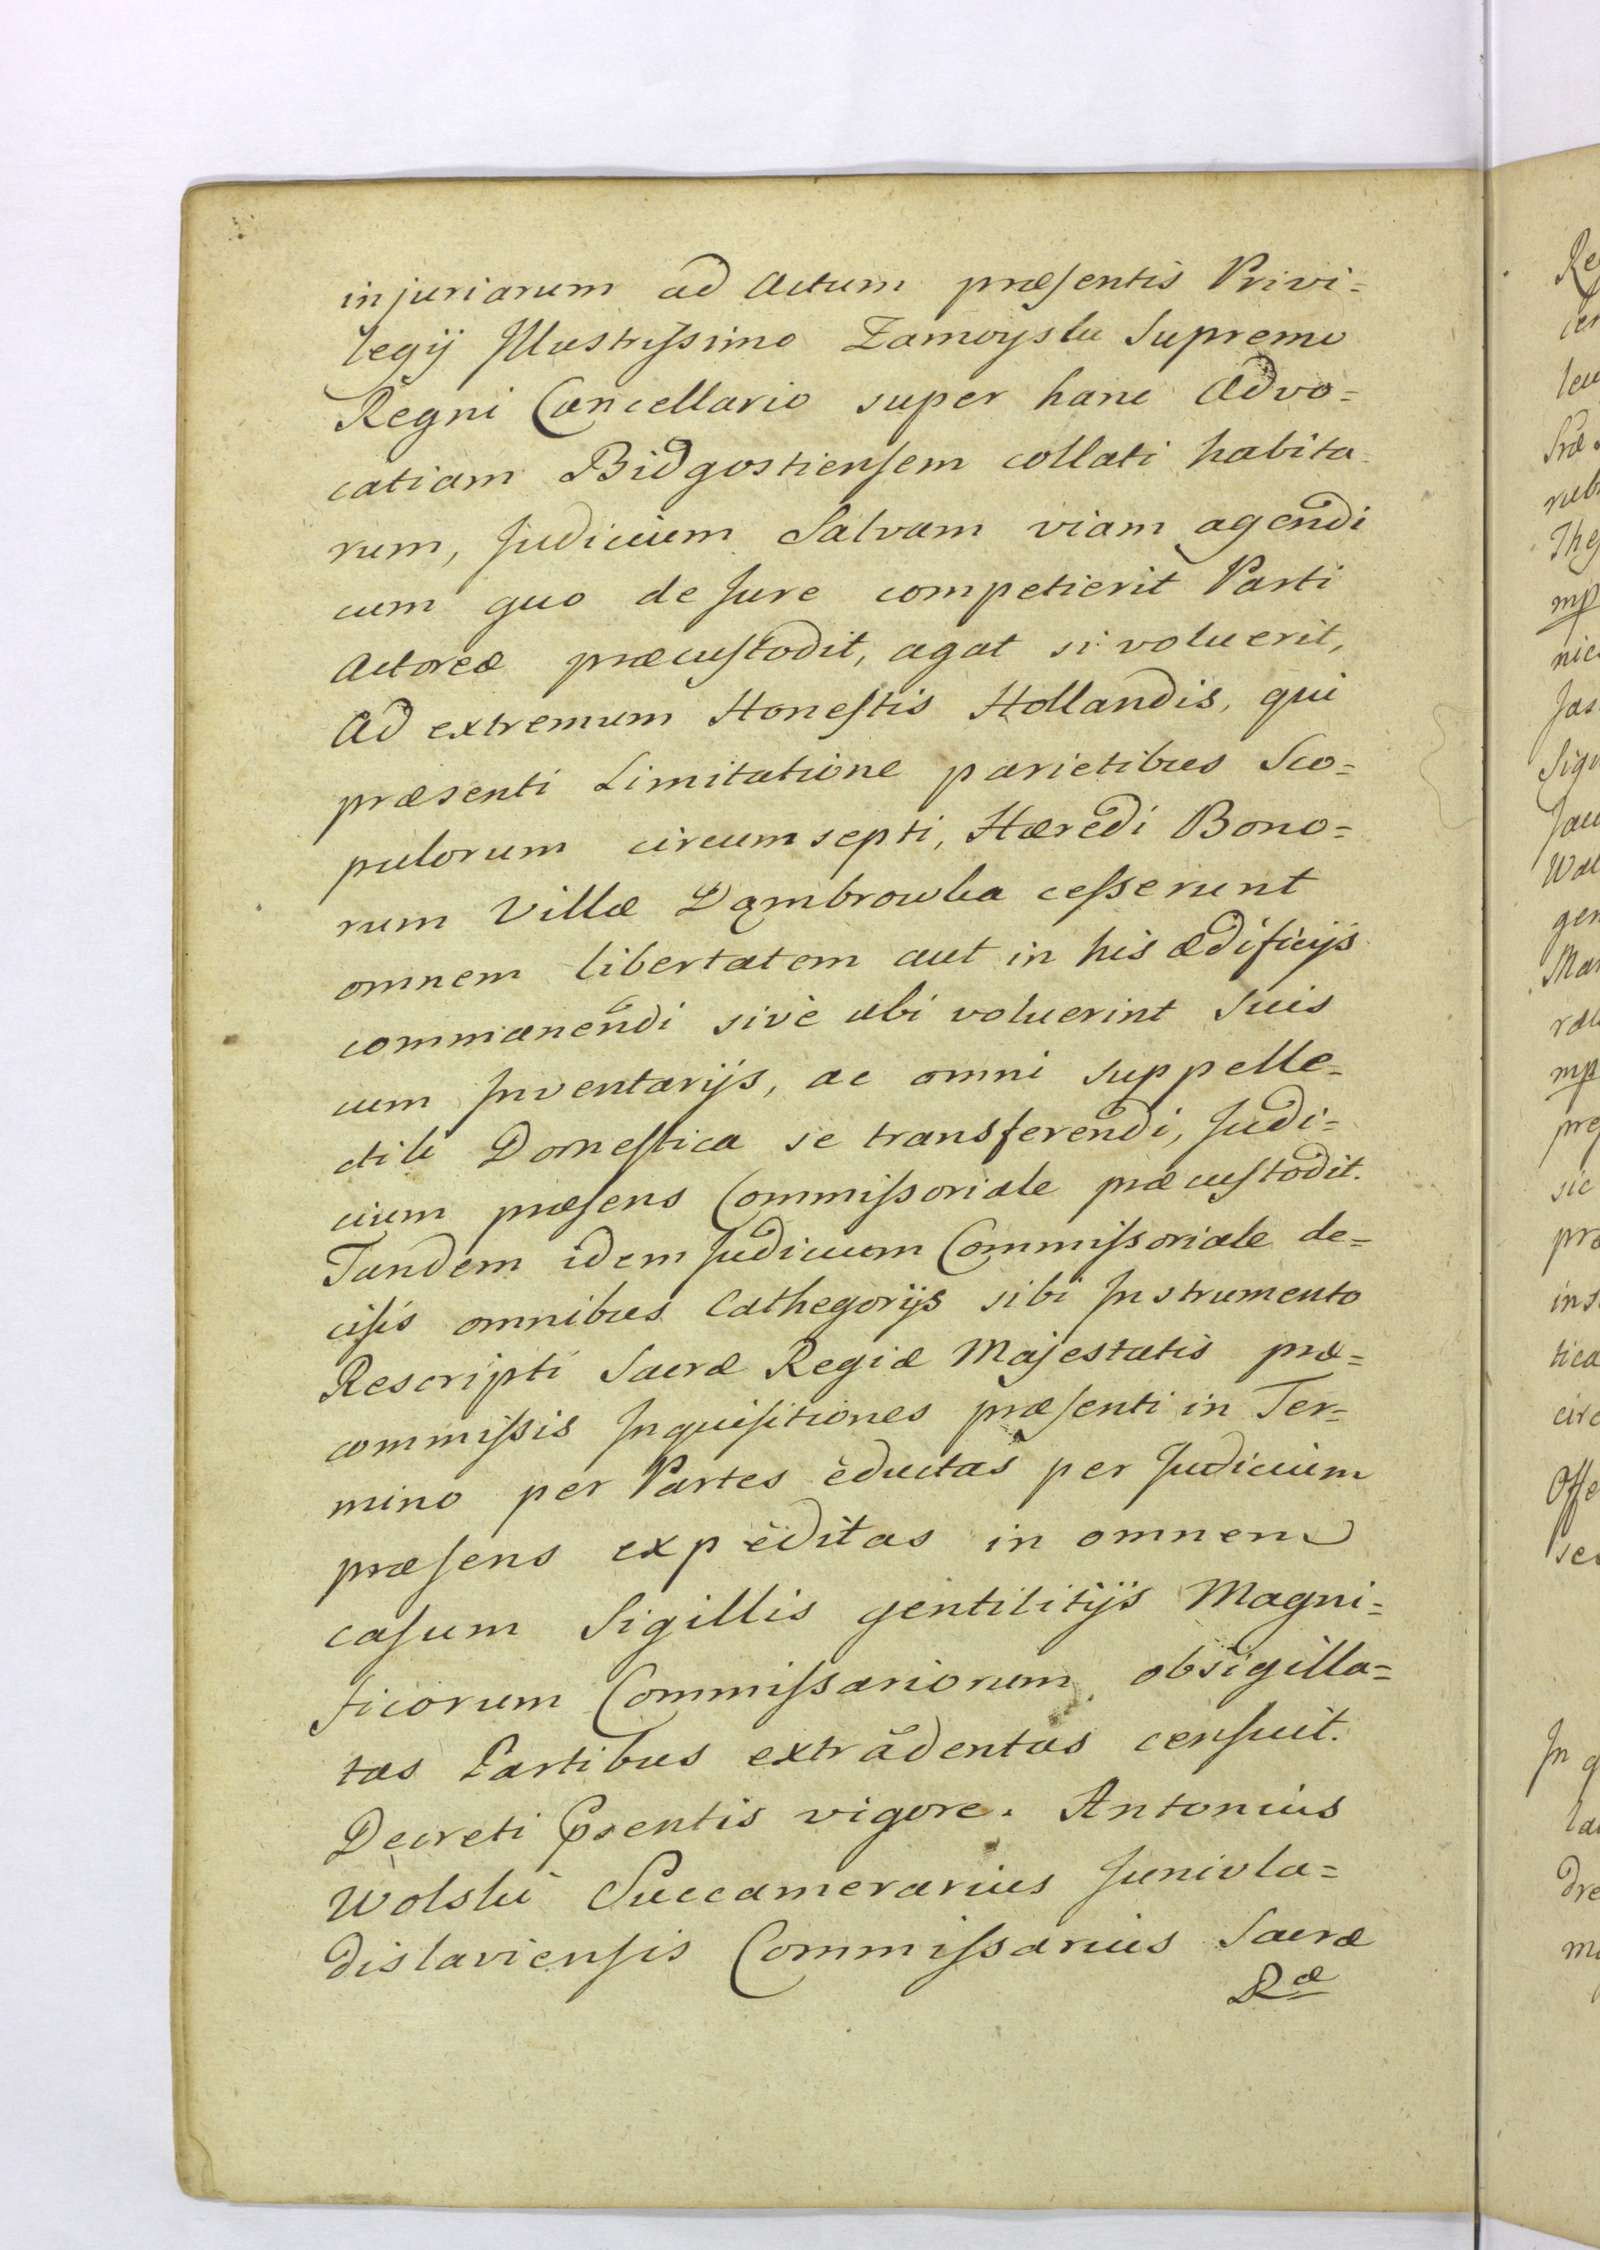 injuriarum ad Actum præsentis Privi=
legij Illustrissimo Zamoyski Supremo
Regni Cancellario super hanc Advo=
catiam Bidgostiensem collati habita-
rum, Judicium Salvam viam agendi
cum quo de Jure competierit Parti
Actoreæ præcustodit, agat si voluerit,
Ad extremum Honestis Hollandis, qui
præsenti Limitatione parietibus Sco=
pulorum circumsepti, Hæredi Bono=
rum Villæ Dąmbrowka cesserunt
omnem libertatem aut in his ædificijs
commanendi sivè ubi voluerint Suis
cum Inventarijs, ac omni suppelle-
ctili Domestica se transferendi, Judi=
cium præsens Commissoriale præcustodit.
Tandem idem Judicium Commissoriale de=
cisis omnibus Cathegorijs sibi Instrumento
Rescripti Sacræ Regiæ Majestatis præ=
commissis Inquisitiones præsenti in Ter=
mino per Partes eductas per Judicium
præsens expeditas in omnem
casum Sigillis gentilitijs Magni=
ficorum Commissariorum obsigilla=
tas Partibus extradentas censuit.
Decreti psentis vigore. Antonius
Wolski Succamerarius Junivla=
dislaviensis Commissarius Sacræ
Ræ